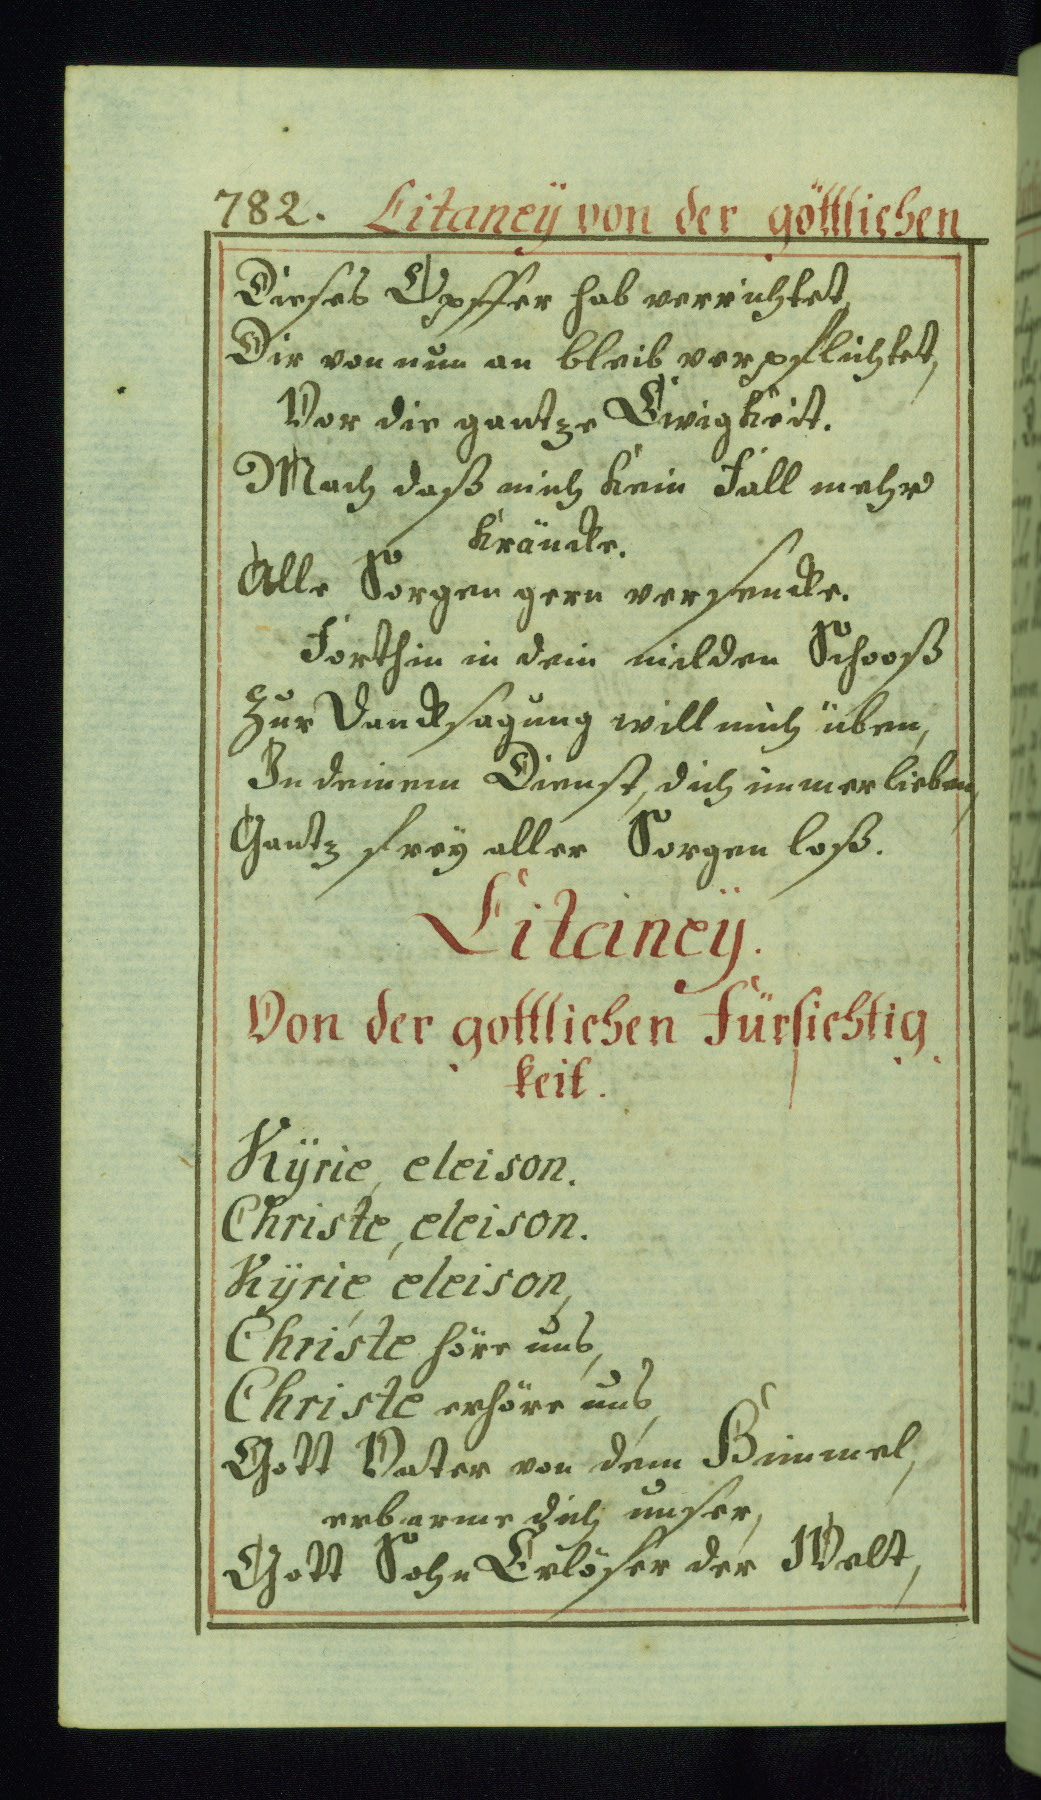 782. Litaneÿ von der göttlichen
Dieses Opffer hab verrichtet,
Dir von nun an bleib verpflichtet,
Vor die gantze Ewigkeit.
Mach daß mich kein Fall mehr
kräncke.
Alle Sorgen gern versencke.
Forthin in dein milden Schooß
Zur Dancksagung will mich üben,
In deinem Dienst, dich immer lieben,
Gantz freÿ aller Sorgen loß.
Litaneÿ.
Von der gottlichen Fürsichtig
keit.
Kÿrie, eleison.
Christe, eleison.
Kÿrie, eleison,
Christe höre uns,
Christe erhöre uns,
Gott Vater von dem Himmel,
erbarme dich unser,
Gott Sohn Erlöser der Welt,